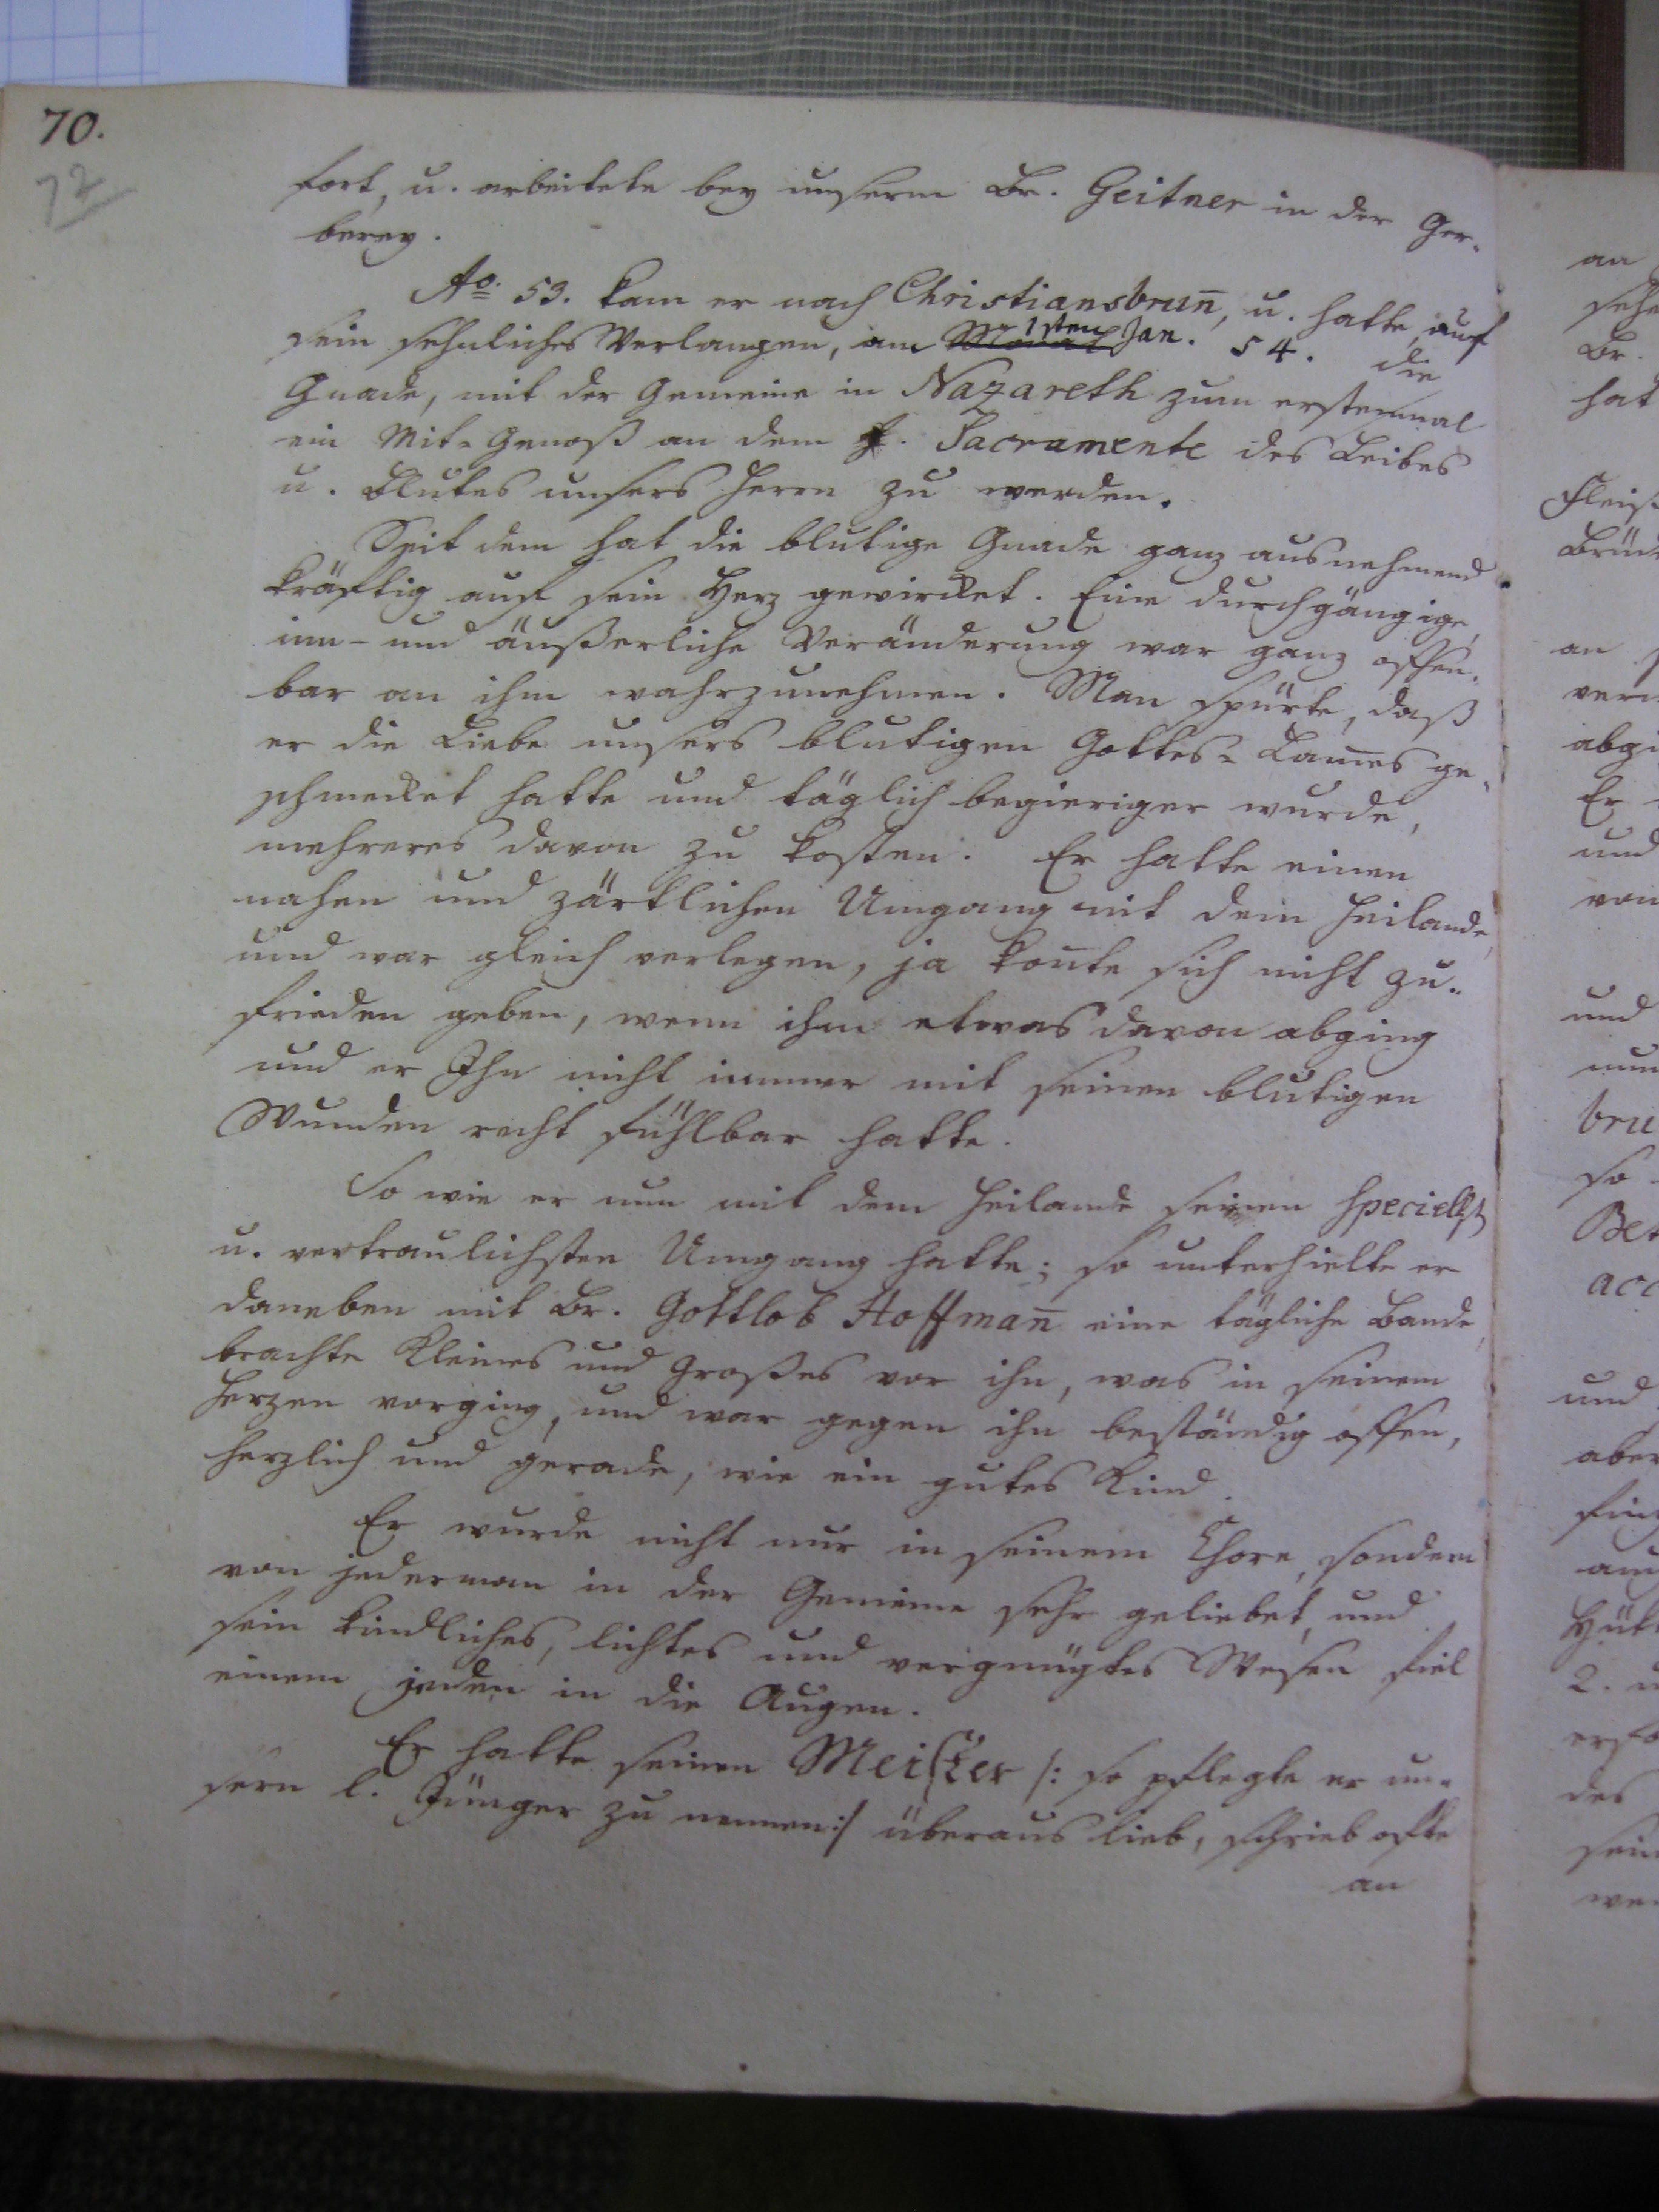 70.
72
fort, u. arbeitete bey unserm Br. Geitner in der Ger-
berey.
Ao. 53. kam er nach Christiansbrun̄, u. hatte, auf
sein sehnliches Verlangen, am 1sten Jan. 54. die
Gnade, mit der Gemeine in Nazareth zum erstenmal
ein Mit-Genoß an dem h. Sacramente des Leibes
u. Blutes unsers Herrn zu werden.
Seit dem hat die blutige Gnade ganz ausnehmend
kräftig auf sein Herz gewircket. Eine durchgängige,
inn- und äußerliche Veränderung war ganz offen-
bar an ihm wahrzunehmen. Man spürte, daß
er die Liebe unsers blutigen Gottes-Lam̄es ge-
schmecket hatte und täglich begieriger wurde,
mehreres davon zu kosten. Er hatte einen
nahen und zärtlichen Umgang mit dem Heilande,
und war gleich verlegen, ja kon̄te sich nicht zu-
frieden geben, wenn ihm etwas davon abging
und er Ihn nicht immer mit seinen blutigen
Wunden recht fühlbar hatte.
So wie er nun mit dem Heilande seinen speciellst
u. vertraulichsten Umgang hatte; so unterhielte er
daneben mit Br. Gottlob Hoffman̄ eine tägliche Bande,
brachte Kleines und Großes vor ihn, was in seinem
Herzen vorging, und war gegen ihn beständig offen,
herzlich und gerade, wie ein gutes Kind.
Er wurde nicht nur in seinem Chore, sondern
von jederman in der Gemeine sehr geliebet, und
sein kindliches, lichtes und vergnügtes Wesen fiel
einem jeden in die Augen.
Er hatte seinen Meister /: so pflegte er un-
sern l. Jünger zu nennen :/ überaus lieb, schrieb offte
an
an
sehr
Br.
hat
Fleiß
Brüd
an
abgi
Er
und
von
und
nun
bru
so
Bet
acc
und
aber
2. u
des
sein